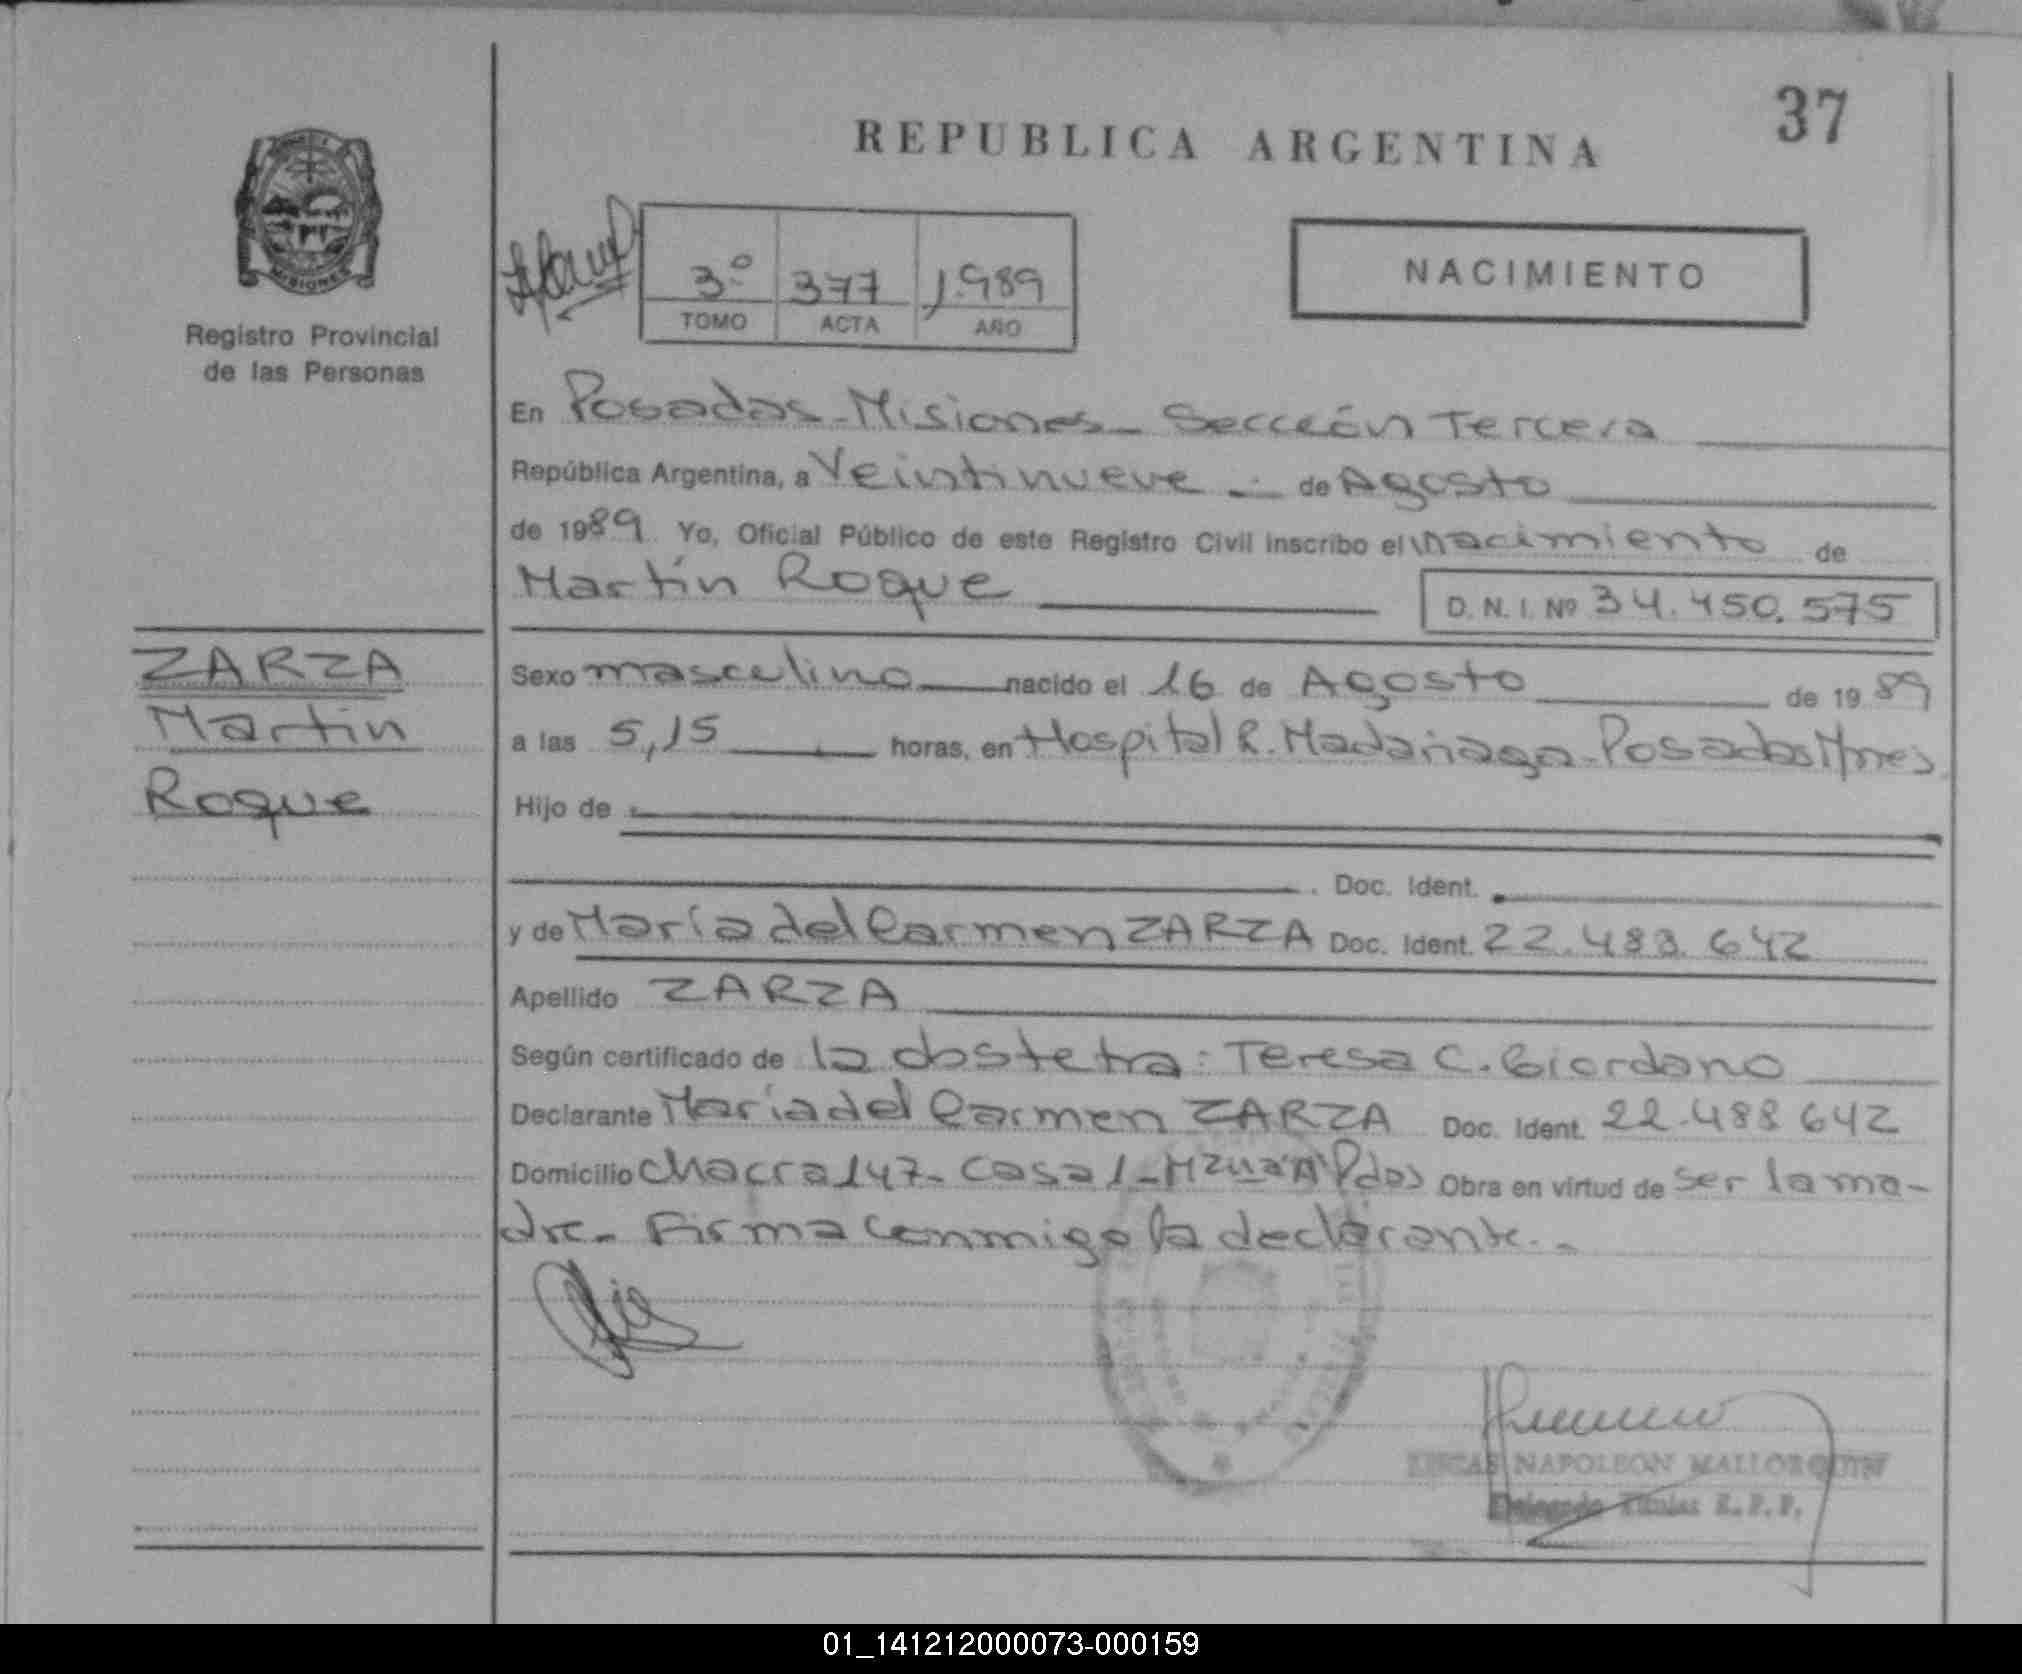 37
REPUBLICA ARGENTINA
3º 377 1.989
TOMO ACTA AÑO
NACIMIENTO
MISIONES
Registro Provincial
de las Personas
En Posadas-Misiones-Sección Tercera
República Argentina, a Veintinueve de Agosto
de 1989 Yo, Oficial Público de este Registro Civil inscribo el nacimiento de
Martín Roque
D. N. I. Nº 34.450.575
ZARZA
Martin
Roque
Sexo masculino nacido el 16 de Agosto de 1989
a las 5,15 horas, en Hospital R. Madariaga-Posadas Mnes
Hijo de
Doc. Ident.
y de María del Carmen ZARZA Doc. Ident. 22.488.642
Apellido ZARZA
Según certificado de la obstetra: Teresa C. Giordano
Declarante María del Carmen ZARZA Doc. Ident. 22.488 642
Domicilio chacra 147- casa 1-Mzna "A" Pdas Obra en virtud de ser la ma-
dre- Firma conmigo la declarante.-
LUCAS NAPOLEON MALLORQUIN
Delegado Titular R.P.P.
01_141212000073-000159